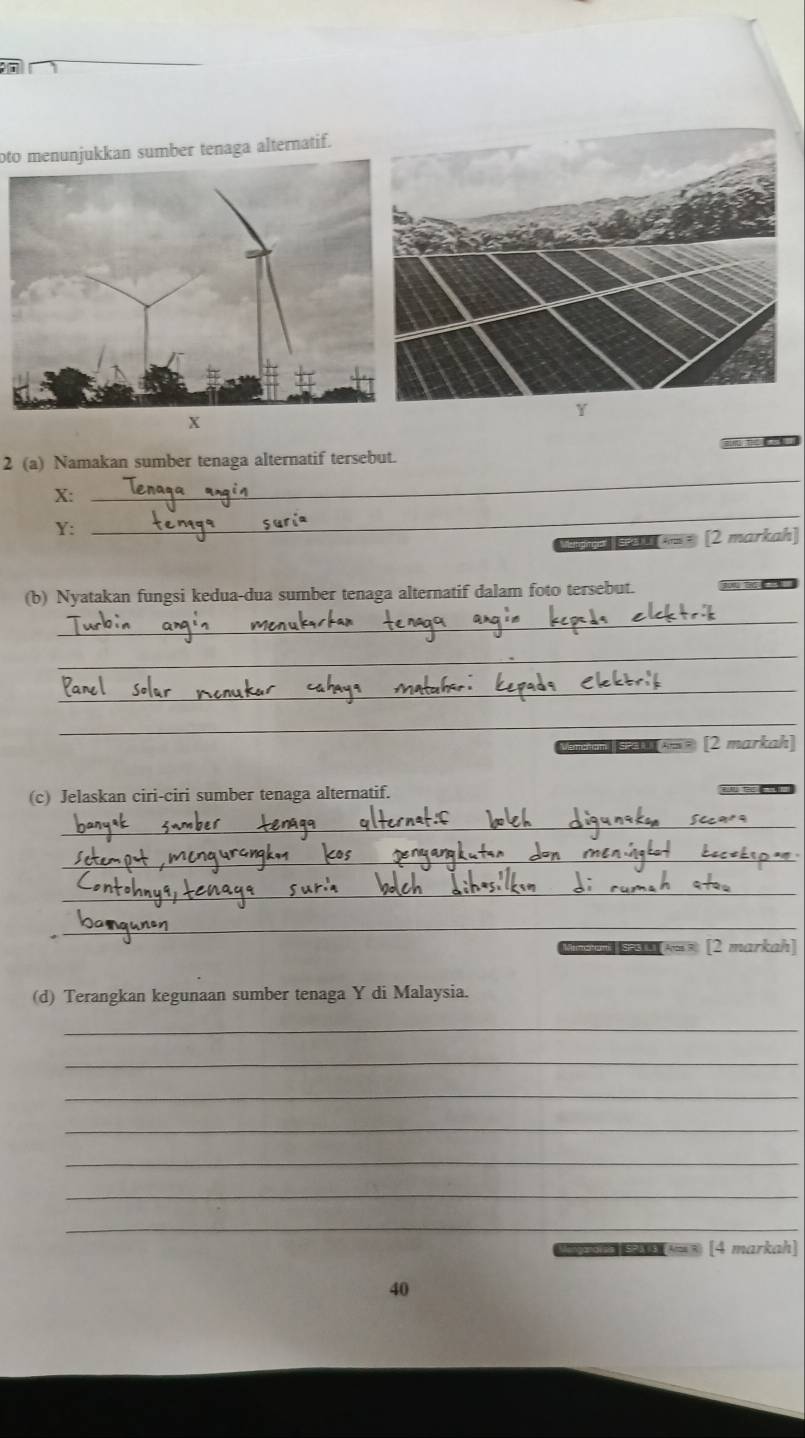 oto menunjukkan sumber tenaga alternatif.
X
Y
2 (a) Namakan sumber tenaga alternatif tersebut.
X: Tenaga angin
Y: tenaga suria
[2 markah]
(b) Nyatakan fungsi kedua-dua sumber tenaga alternatif dalam foto tersebut.
Turbin angin menukarkan tenaga angin kepada elektrik
Panel solar menukar cahaya matahari kepada elektrik
Memahami [2 markah]
(c) Jelaskan ciri-ciri sumber tenaga alternatif.
banyak sumber tenaga alternatif boleh digunakan secara
setempat, mengurangkan kos pengangkutan dan meningkat kecekapan.
Contohnya, tenaga suria boleh dihasilkan di rumah atau
bangunan
Memahami [2 markah]
(d) Terangkan kegunaan sumber tenaga Y di Malaysia.
[4 markah]
40